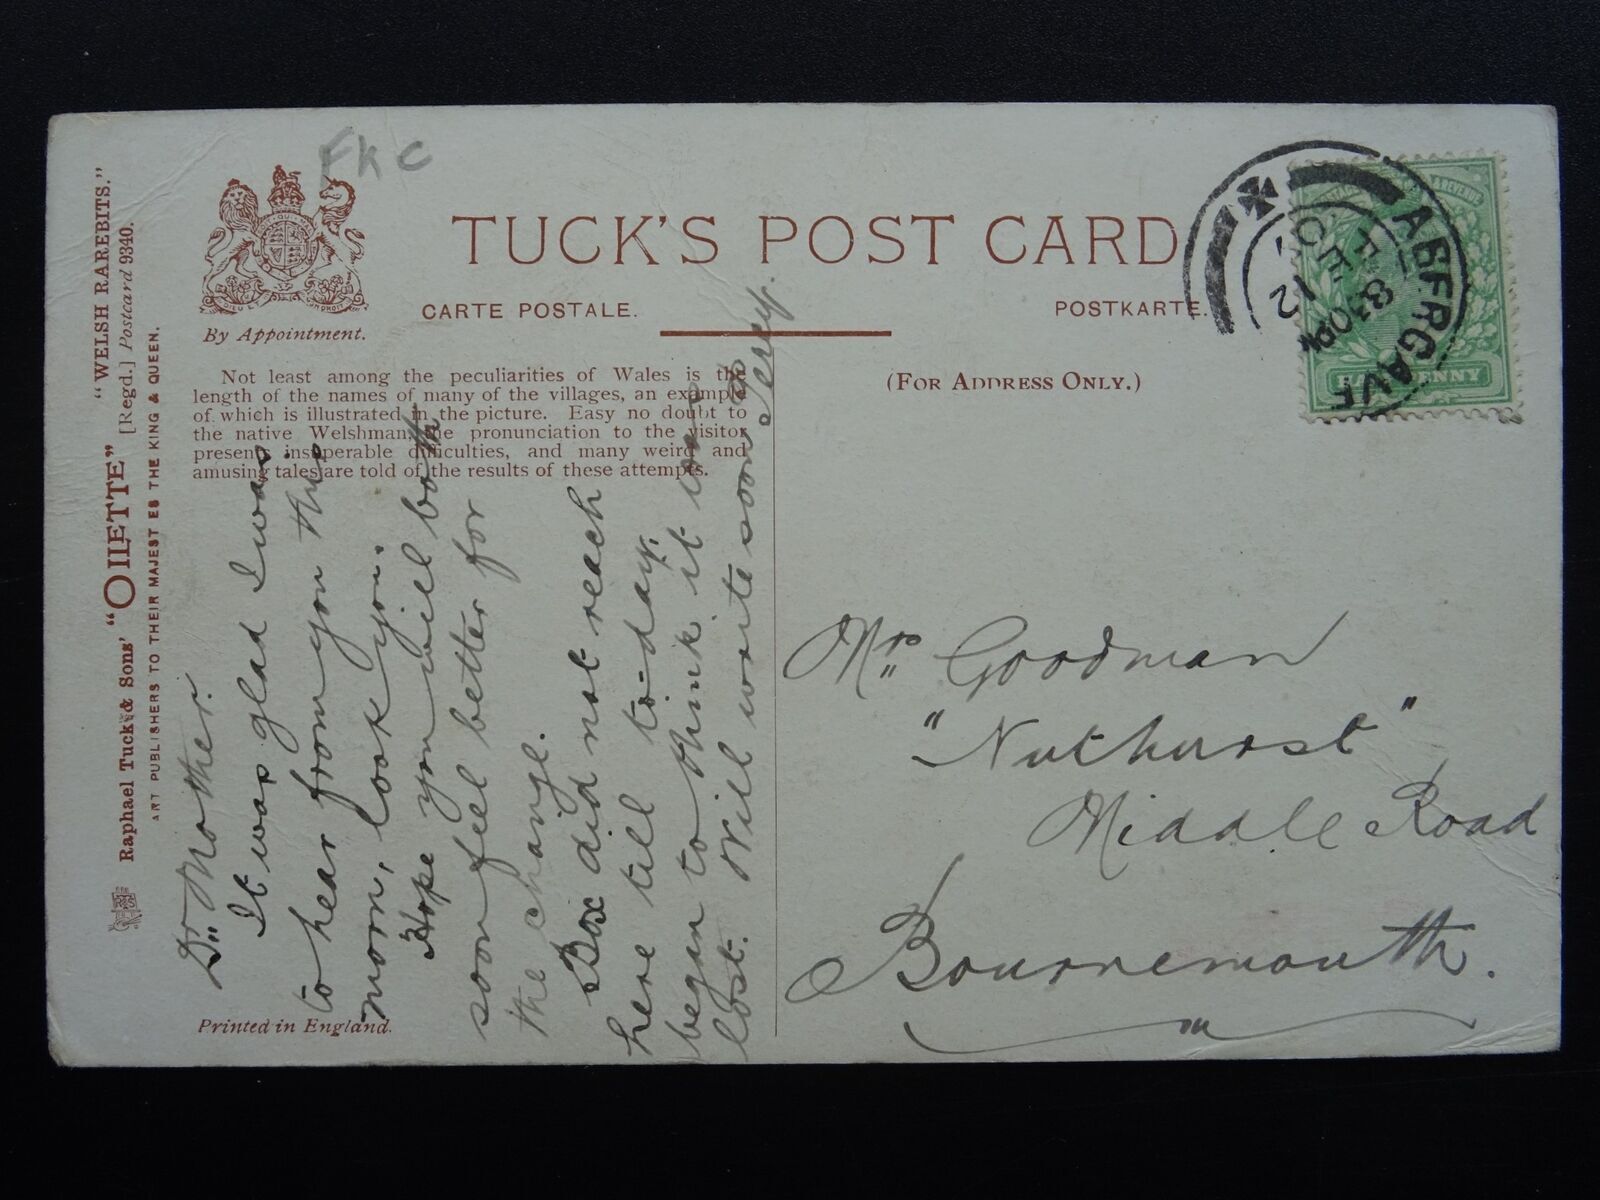 FKC
TUCK'S POST CARD
CARTE POSTALE.
POSTKARTE.
By Appointment.
(FOR ADDRESS ONLY.)
"WELSH RAREBITS."
Raphael Tuck & Sons' "OILETTE" [Regd.] Postcard 9340.
ART PUBLISHERS TO THEIR MAJESTIES THE KING & QUEEN.
Not least among the peculiarities of Wales is the
length of the names of many of the villages, an example
of which is illustrated in the picture. Easy no doubt to
the native Welshman, the pronunciation to the visitor
presents insuperable difficulties, and many weird and
amusing tales are told of the results of these attempts.
Dr Mother.
It was glad I was
to hear from you this
morn, look you.
Hope you will both
soon feel better for
the change.
Box did not reach
here till to-day.
began to think it was
lost. Will write soon
Printed in England.
ABERGAVE
8 30PM
FE 12
HALFPENNY
Mrs Goodman
"Nuthurst"
Middle Road
Bournemouth.